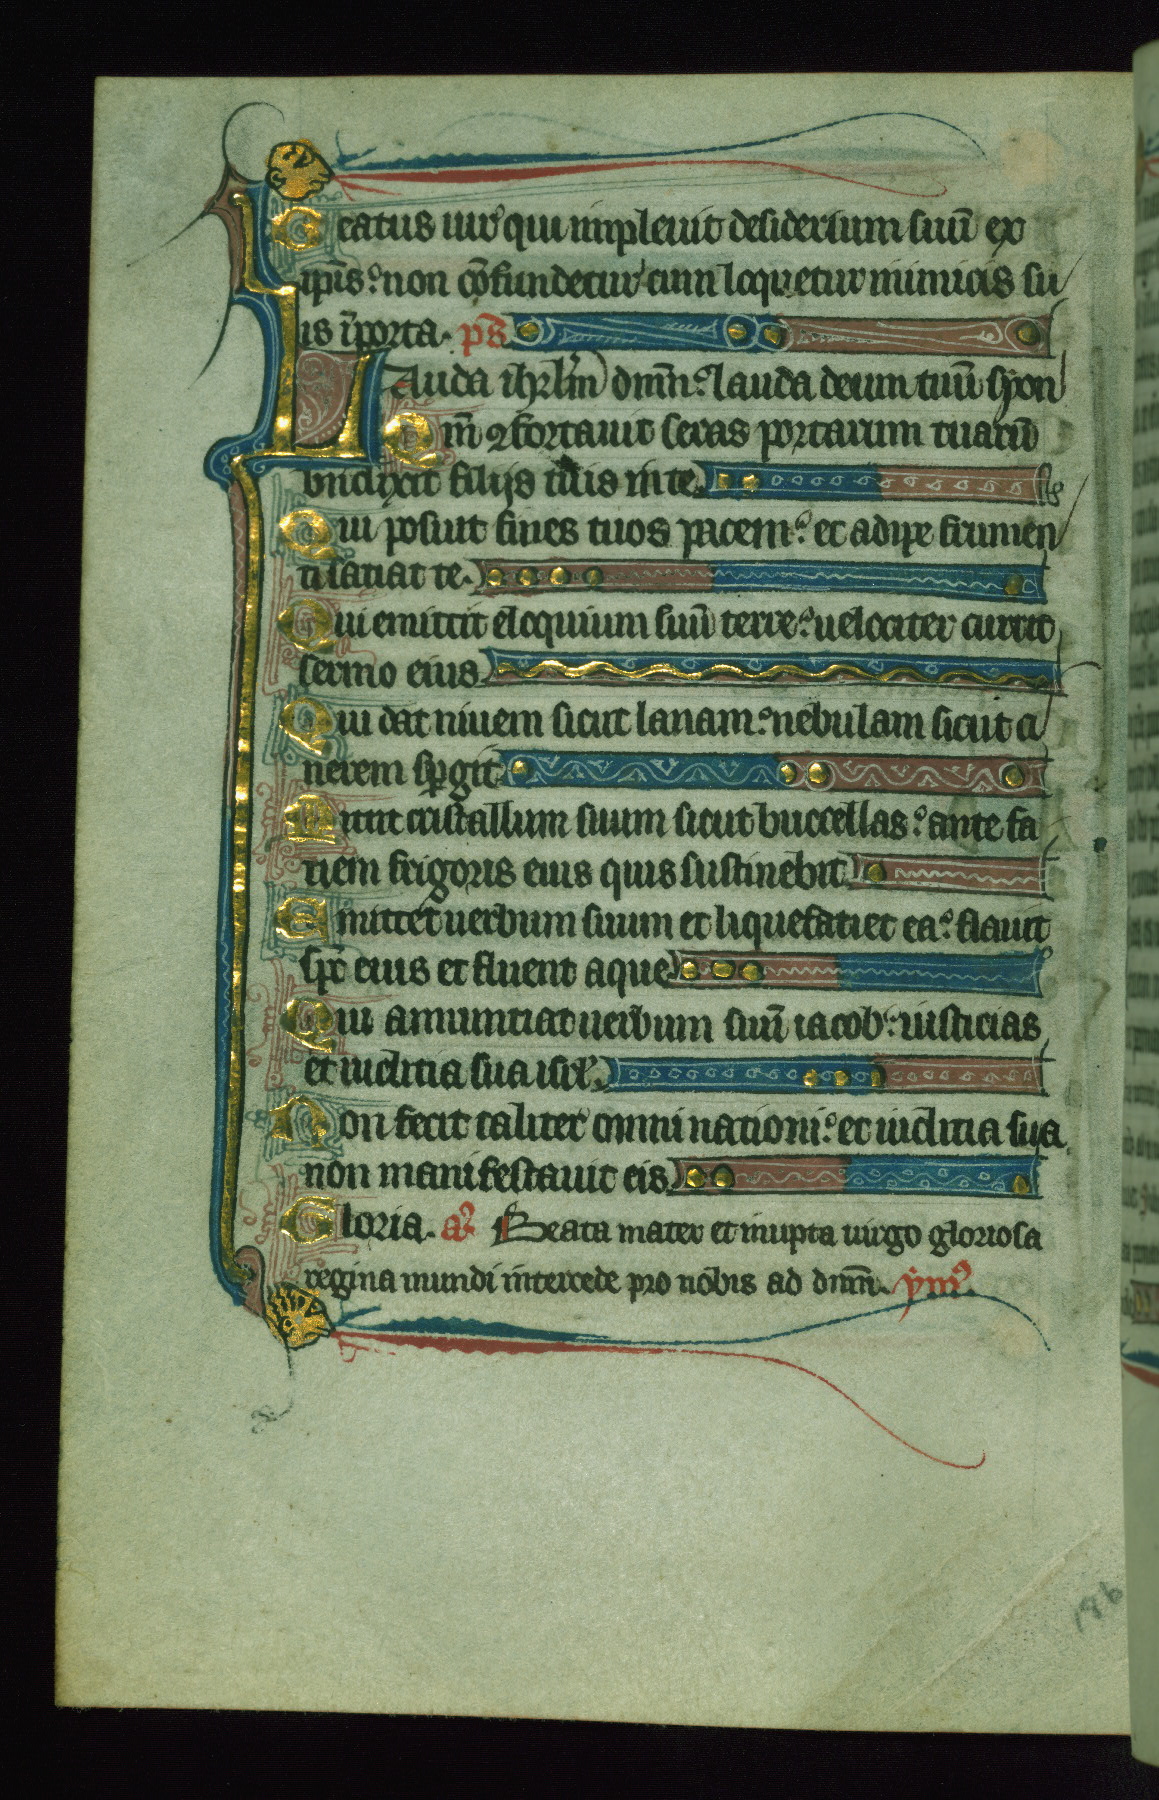 Beatus uir qui impleuit desiderium suū ex
ip̄is: non cōfundetur cum loquetur inimicis su
is ī porta. ps̄
Lauda ihrlm̄ dmn̄: lauda deum tuū syon
Qm̄ ꝯfortauit seras portarum tuarū
bndixit filijs tuis in te.
Qui posuit fines tuos pacem: et adipe frumen
ti satiat te.
Qui emittit eloquium suū terre: uelociter currit
sermo eius
Qui dat niuem sicut lanam: nebulam sicut ci
nerem sp̄git
Mittit cristallum suum sicut buccellas: ante fa
ciem frigoris eius quis sustinebit
Emittet uerbum suum et liquefatiet ea: flauit
sp̄c eius et fluent aque
Qui annuntiat uerbum suū iacob: iusticias
et iuditia sua isrl̄
Non fecit taliter omni nationi: et iuditia sua
non manifestauit eis
Gloria. a᷒ Beata mater et inupta uirgo gloriosa
regina mundi intercede pro nobis ad dnm̄. ym᷒
186